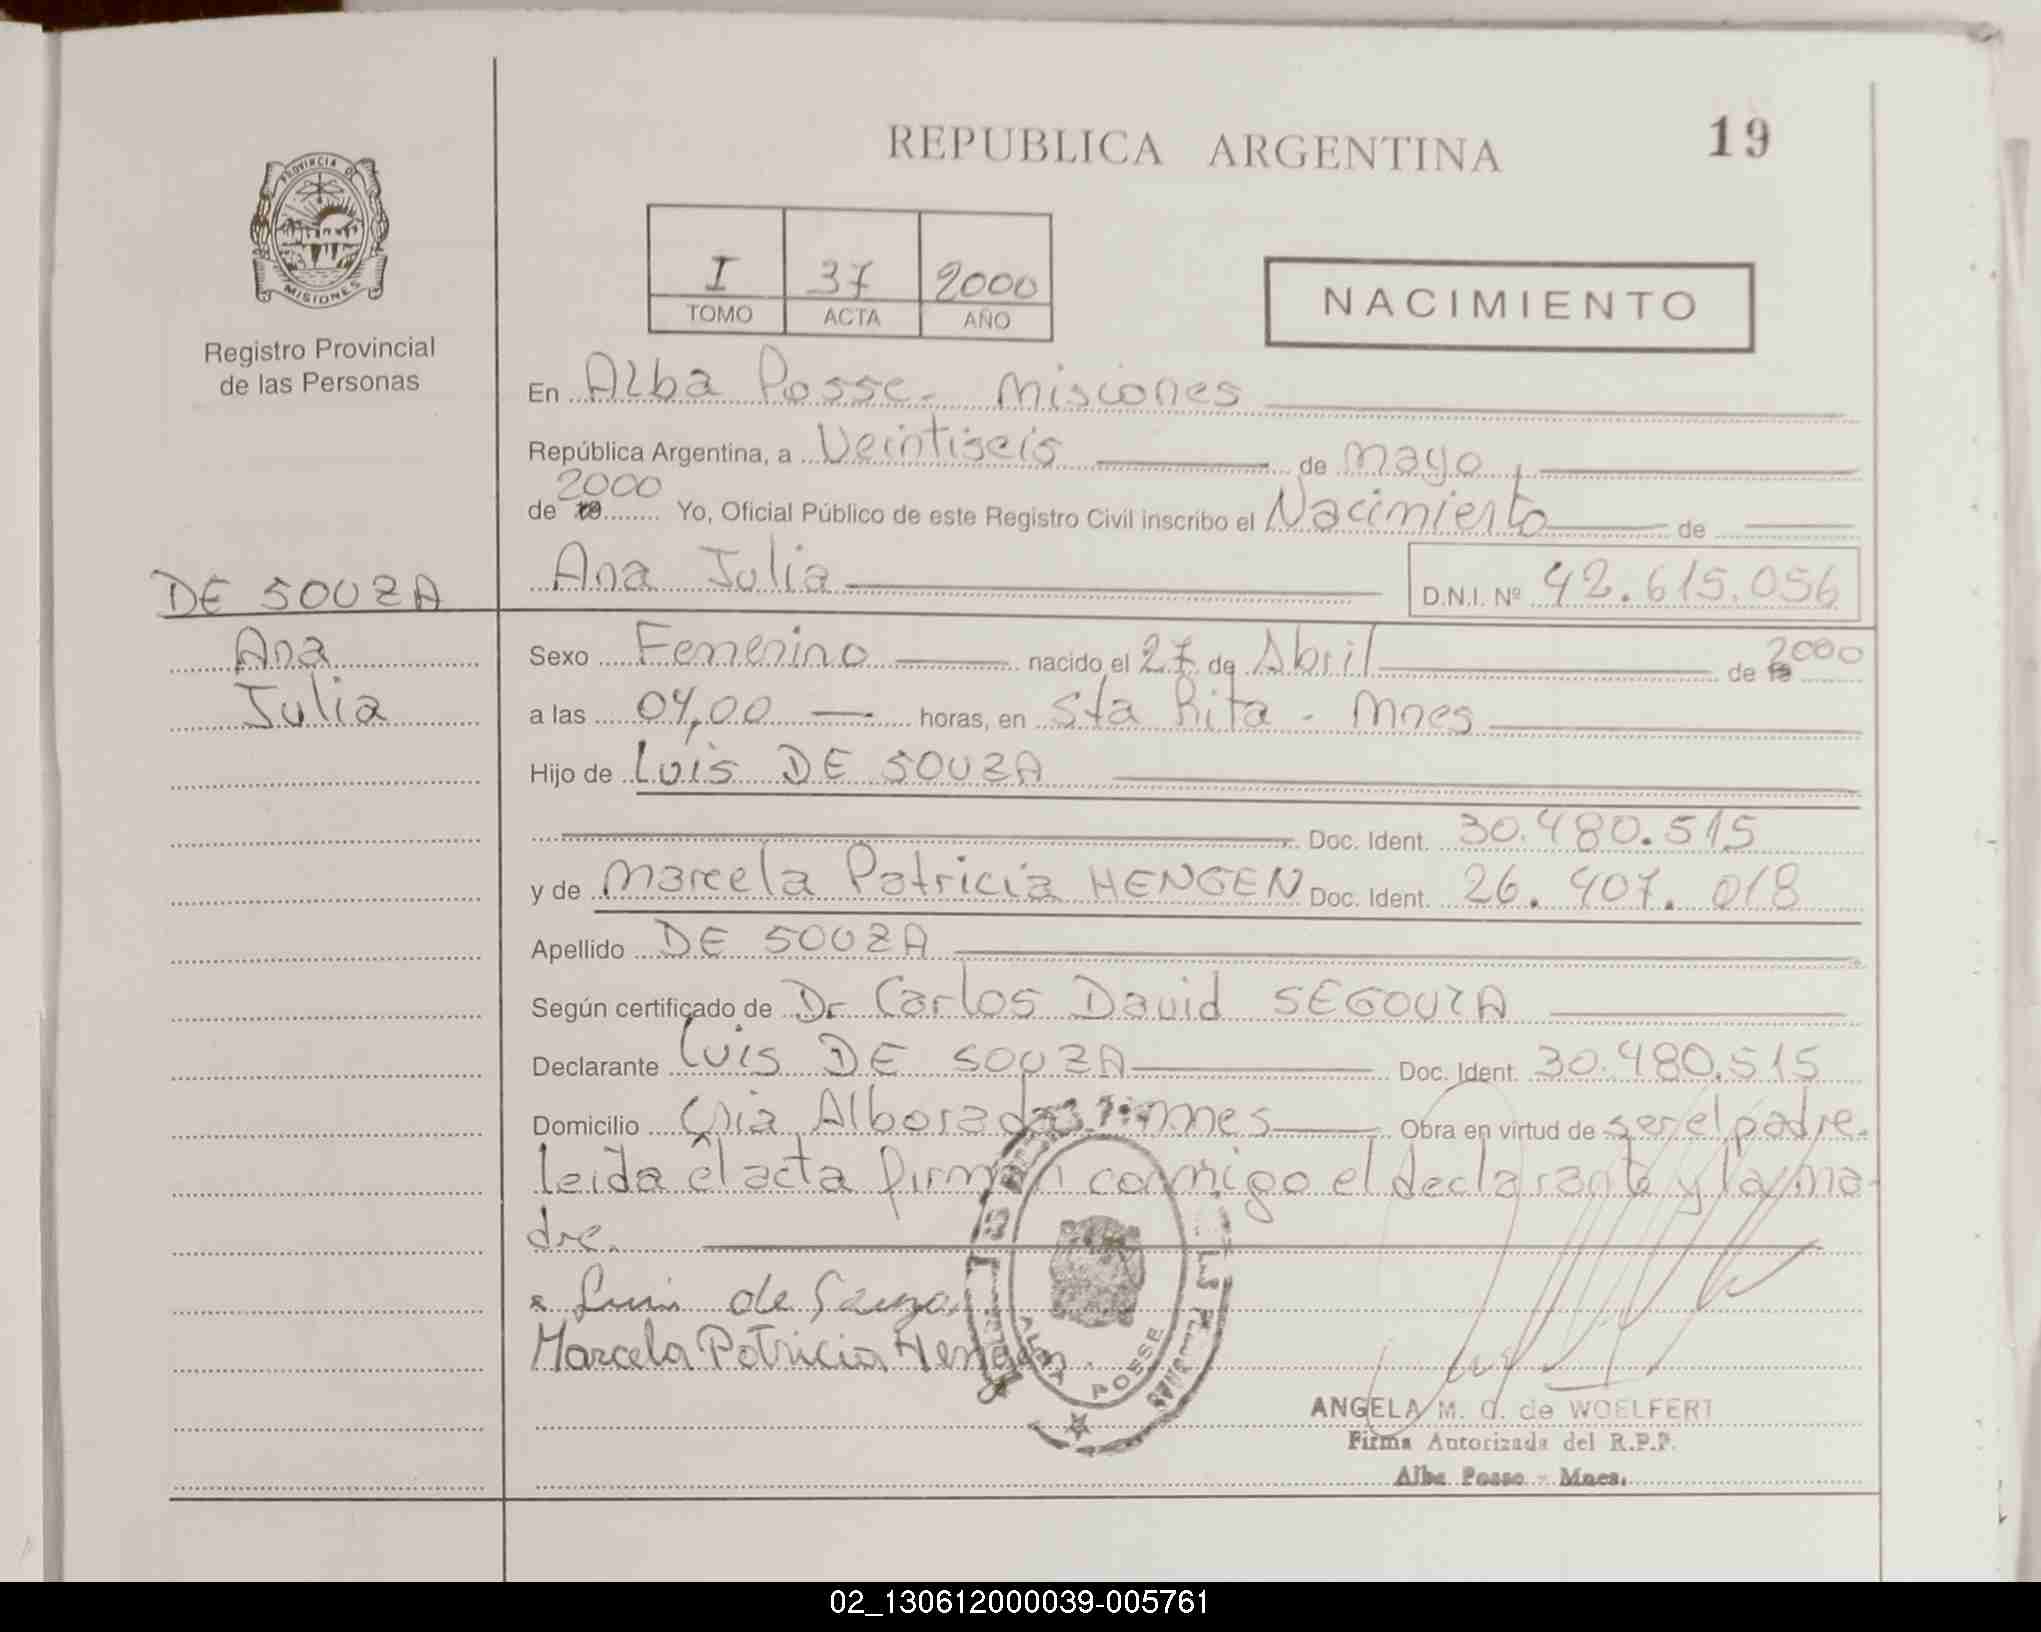 REPUBLICA ARGENTINA
19
PROVINCIA DE
MISIONES
Registro Provincial
de las Personas
I 37 2000
TOMO ACTA AÑO
NACIMIENTO
En Alba Posse - Misiones
República Argentina, a Veintiseis de mayo
de 19 2000 Yo, Oficial Público de este Registro Civil inscribo el Nacimiento de
Ana Julia D.N.I. Nº 42.615.056
DE SOUZA
Ana
Julia
Sexo Femenino nacido el 27 de Abril de 19 2000
a las 04,00 horas, en Sta Rita - Mnes
Hijo de Luis DE SOUZA
Doc. Ident. 30.480.515
y de Marcela Patricia HENGEN Doc. Ident. 26.407.018
Apellido DE SOUZA
Según certificado de Dr Carlos David SEGOVIA
Declarante Luis DE SOUZA Doc. Ident. 30.480.515
Domicilio Cnia Alborada Mnes Obra en virtud de ser el padre.
Leida el acta firman conmigo el declarante y la ma-
dre.
x Luis de Sauza
Marcela Patricia Hengen.
ALBA POSSE
ANGELA M. G. de WOELFERT
Firma Autorizada del R.P.P.
Alba Posse - Mnes.
02_130612000039-005761